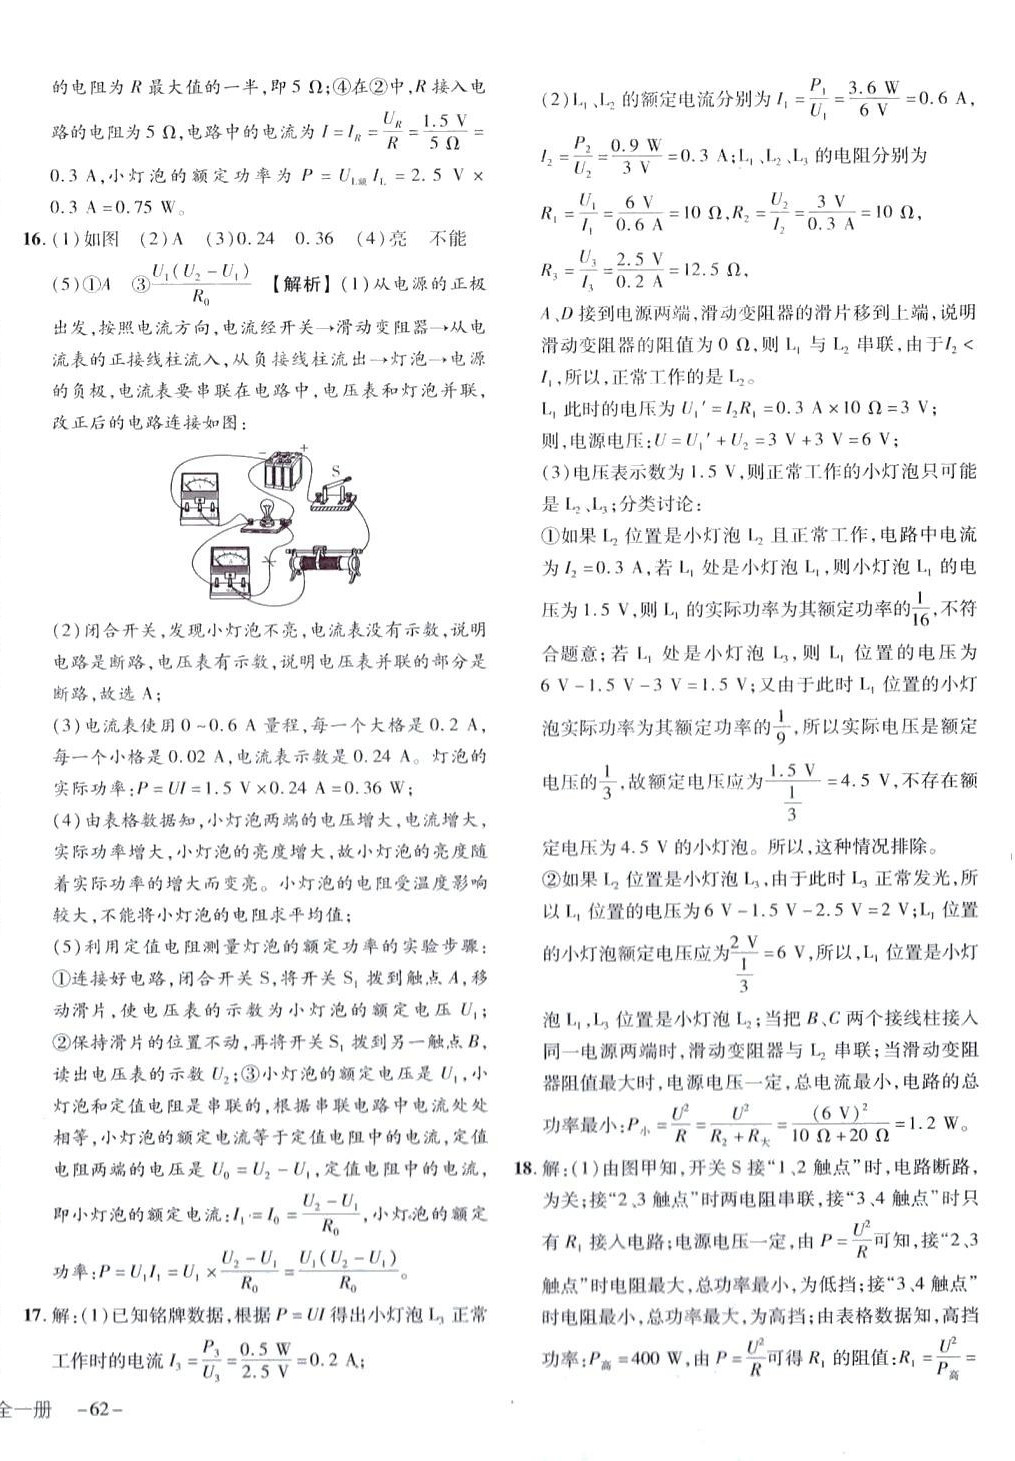 的电阻为 R 最大值的一半,即 5 Ω;④在②中,R 接入电
路的电阻为 5 Ω,电路中的电流为 I = I_R = U_R/R = 1.5 V/5 Ω =
0.3 A,小灯泡的额定功率为 P = U_L额 I_L = 2.5 V ×
0.3 A = 0.75 W。
16. (1)如图 (2)A (3)0.24 0.36 (4)亮 不能
(5)①A ③U₁(U₂ - U₁)/R₀ 【解析】(1)从电源的正极
出发,按照电流方向,电流经开关→滑动变阻器→从电
流表的正接线柱流入,从负接线柱流出→灯泡→电源
的负极,电流表要串联在电路中,电压表和灯泡并联,
改正后的电路连接如图:
- +
S
A
(2)闭合开关,发现小灯泡不亮,电流表没有示数,说明
电路是断路,电压表有示数,说明电压表并联的部分是
断路,故选 A;
(3)电流表使用 0 ~ 0.6 A 量程,每一个大格是 0.2 A,
每一个小格是 0.02 A,电流表示数是 0.24 A。灯泡的
实际功率:P = UI = 1.5 V × 0.24 A = 0.36 W;
(4)由表格数据知,小灯泡两端的电压增大,电流增大,
实际功率增大,小灯泡的亮度增大,故小灯泡的亮度随
着实际功率的增大而变亮。小灯泡的电阻受温度影响
较大,不能将小灯泡的电阻求平均值;
(5)利用定值电阻测量灯泡的额定功率的实验步骤:
①连接好电路,闭合开关 S,将开关 S₁ 拨到触点 A,移
动滑片,使电压表的示数为小灯泡的额定电压 U₁;
②保持滑片的位置不动,再将开关 S₁ 拨到另一触点 B,
读出电压表的示数 U₂;③小灯泡的额定电压是 U₁,小
灯泡和定值电阻是串联的,根据串联电路中电流处处
相等,小灯泡的额定电流等于定值电阻中的电流,定值
电阻两端的电压是 U₀ = U₂ - U₁,定值电阻中的电流,
即小灯泡的额定电流:I₁ = I₀ = (U₂ - U₁)/R₀,小灯泡的额定
功率:P = U₁I₁ = U₁ × (U₂ - U₁)/R₀ = U₁(U₂ - U₁)/R₀。
17. 解:(1)已知铭牌数据,根据 P = UI 得出小灯泡 L₃ 正常
工作时的电流 I₃ = P₃/U₃ = 0.5 W/2.5 V = 0.2 A;
全一册 -62-
(2)L₁、L₂ 的额定电流分别为 I₁ = P₁/U₁ = 3.6 W/6 V = 0.6 A,
I₂ = P₂/U₂ = 0.9 W/3 V = 0.3 A;L₁、L₂、L₃ 的电阻分别为
R₁ = U₁/I₁ = 6 V/0.6 A = 10 Ω,R₂ = U₂/I₂ = 3 V/0.3 A = 10 Ω,
R₃ = U₃/I₃ = 2.5 V/0.2 A = 12.5 Ω,
A、D 接到电源两端,滑动变阻器的滑片移到上端,说明
滑动变阻器的阻值为 0 Ω,则 L₁ 与 L₂ 串联,由于 I₂ <
I₁,所以,正常工作的是 L₂。
L₁ 此时的电压为 U₁′ = I₂R₁ = 0.3 A × 10 Ω = 3 V;
则,电源电压:U = U₁′ + U₂ = 3 V + 3 V = 6 V;
(3)电压表示数为 1.5 V,则正常工作的小灯泡只可能
是 L₂、L₃;分类讨论:
①如果 L₂ 位置是小灯泡 L₂ 且正常工作,电路中电流
为 I₂ = 0.3 A,若 L₁ 处是小灯泡 L₁,则小灯泡 L₁ 的电
压为 1.5 V,则 L₁ 的实际功率为其额定功率的1/16,不符
合题意;若 L₁ 处是小灯泡 L₃,则 L₁ 位置的电压为
6 V - 1.5 V - 3 V = 1.5 V;又由于此时 L₁ 位置的小灯
泡实际功率为其额定功率的1/9,所以实际电压是额定
电压的1/3,故额定电压应为1.5 V/(1/3) = 4.5 V,不存在额
定电压为 4.5 V 的小灯泡。所以,这种情况排除。
②如果 L₂ 位置是小灯泡 L₃,由于此时 L₃ 正常发光,所
以 L₁ 位置的电压为 6 V - 1.5 V - 2.5 V = 2 V;L₁ 位置
的小灯泡额定电压应为2 V/(1/3) = 6 V,所以,L₁ 位置是小灯
泡 L₁,L₃ 位置是小灯泡 L₂;当把 B、C 两个接线柱接入
同一电源两端时,滑动变阻器与 L₂ 串联;当滑动变阻
器阻值最大时,电源电压一定,总电流最小,电路的总
功率最小:P小 = U²/R = U²/(R₂ + R大) = (6 V)²/(10 Ω + 20 Ω) = 1.2 W。
18. 解:(1)由图甲知,开关 S 接“1、2 触点”时,电路断路,
为关;接“2、3 触点”时两电阻串联,接“3、4 触点”时只
有 R₁ 接入电路;电源电压一定,由 P = U²/R可知,接“2、3
触点”时电阻最大,总功率最小,为低挡;接“3、4 触点”
时电阻最小,总功率最大,为高挡;由表格数据知,高挡
功率:P高 = 400 W,由 P = U²/R可得 R₁ 的阻值:R₁ = U²/P高 =